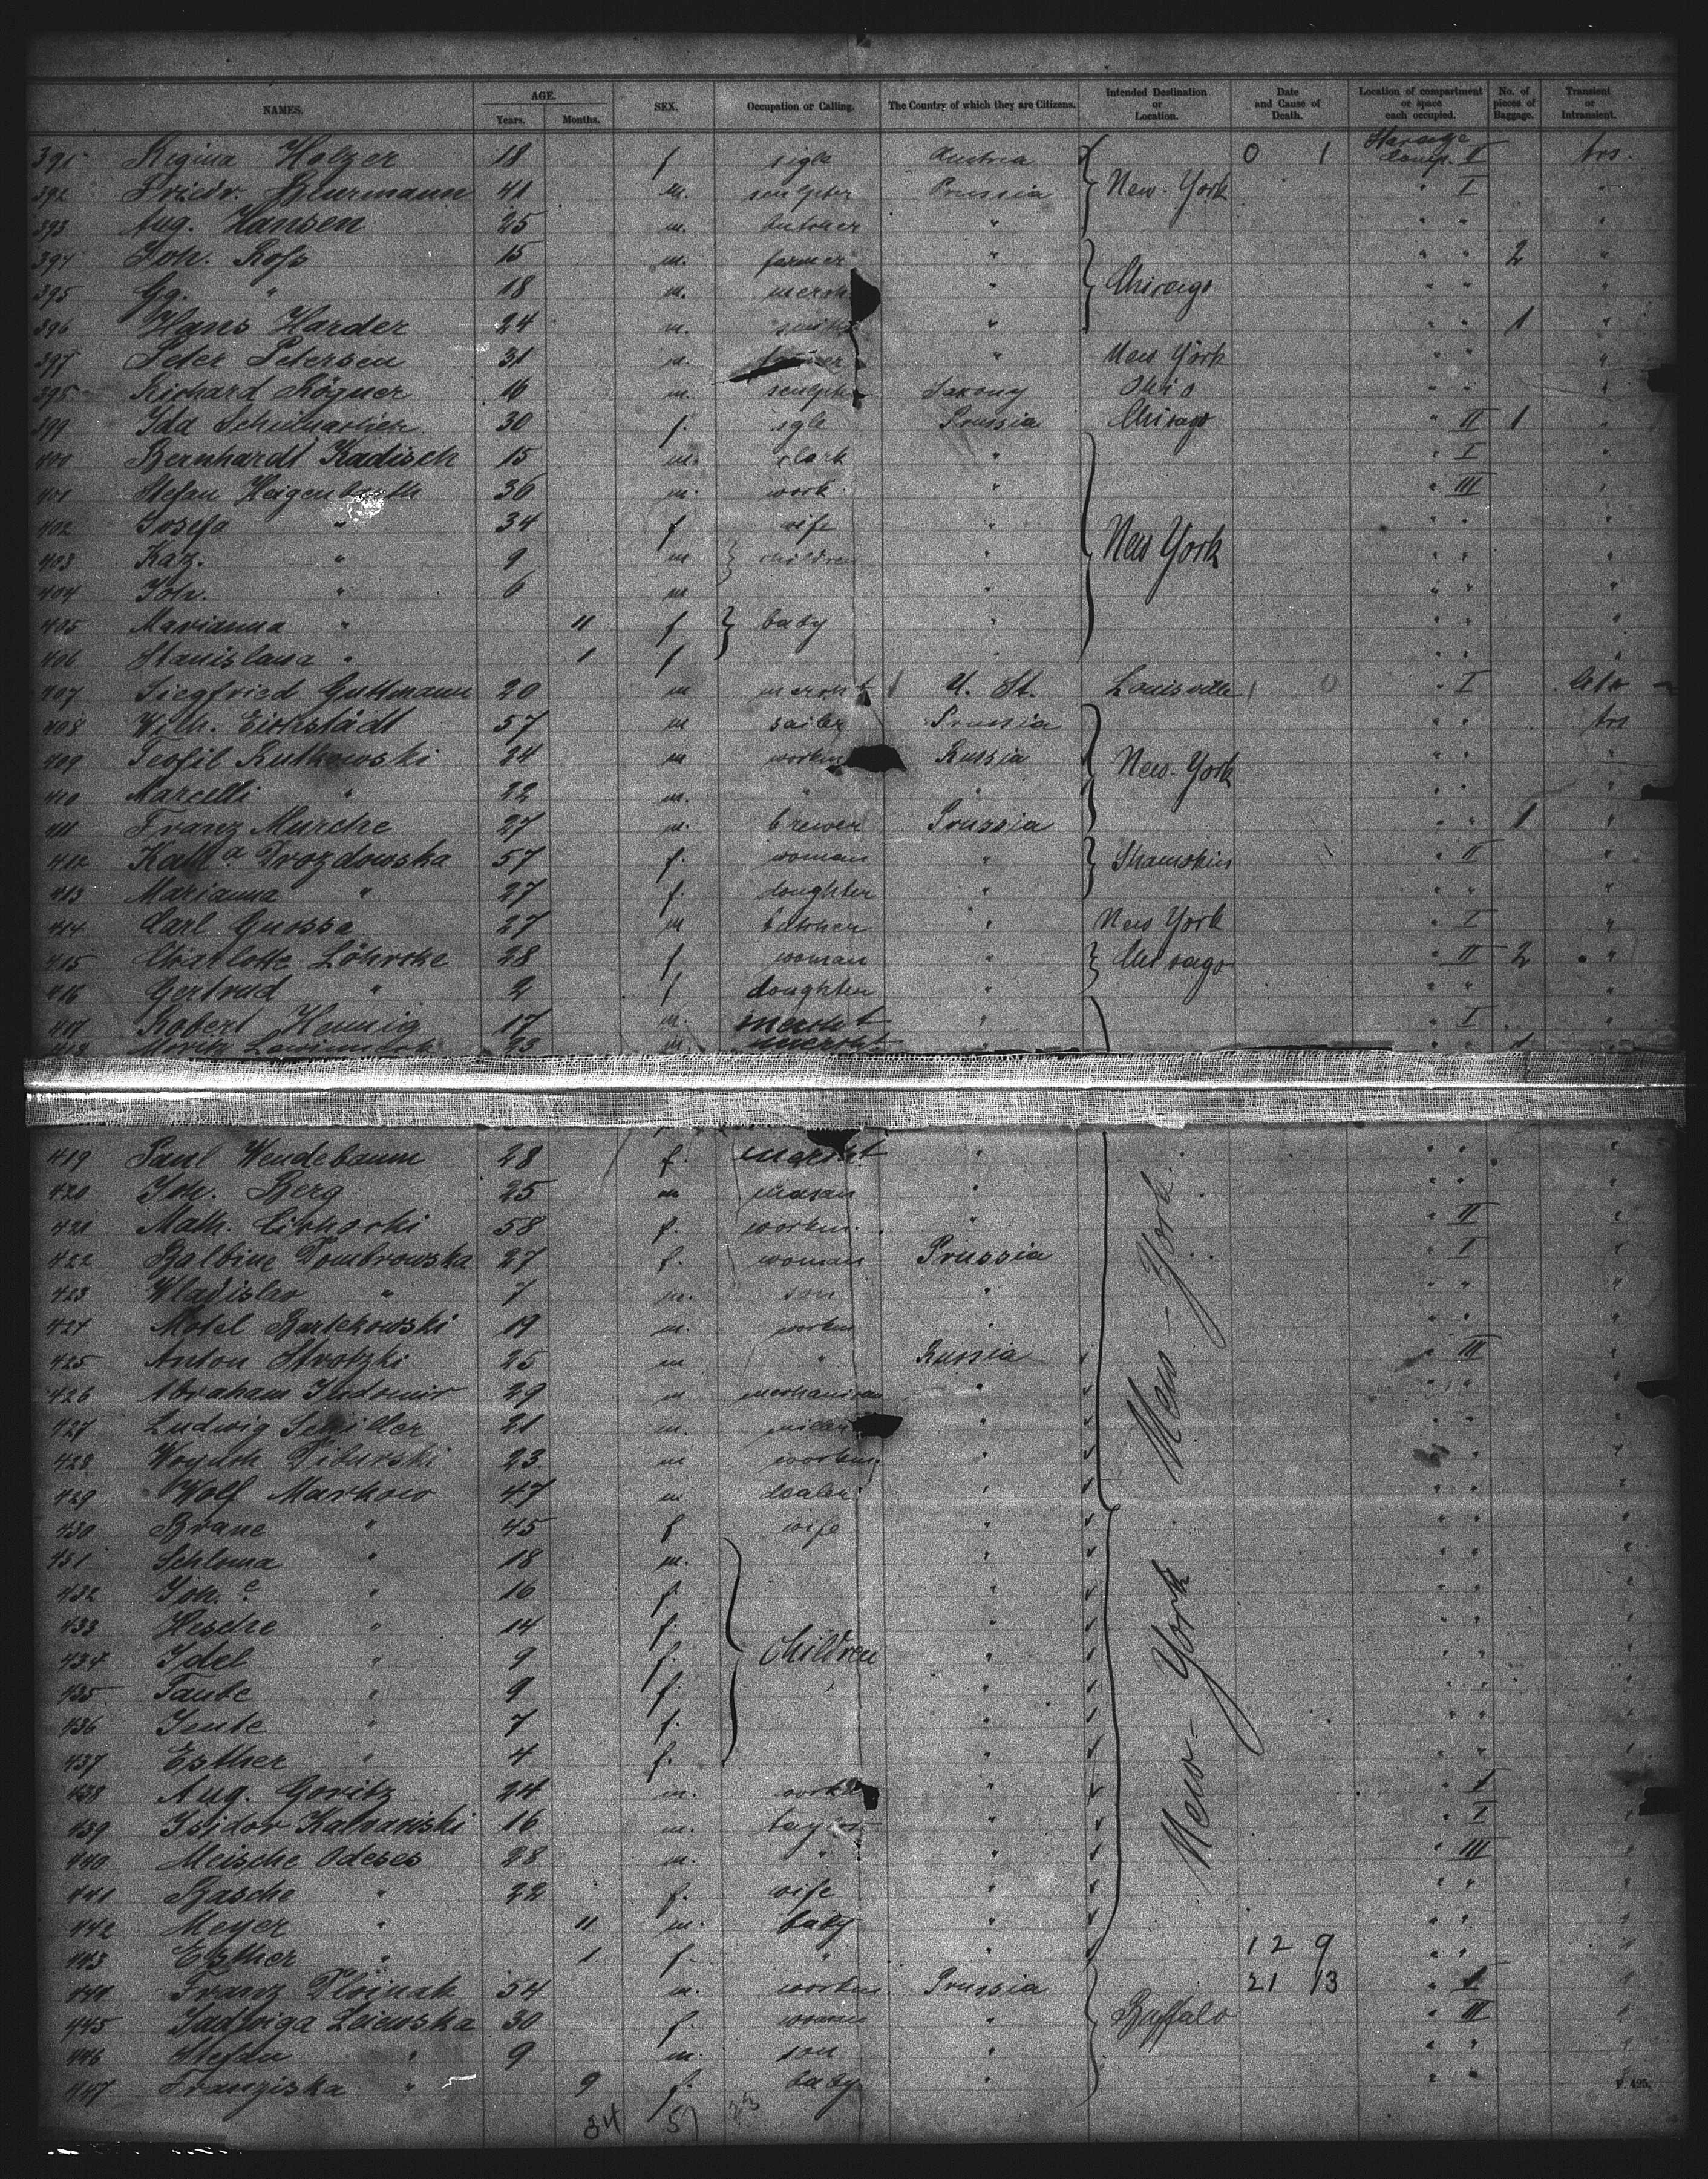 NAMES. AGE. Years. Months. SEX. Occupation or Calling. The Country of which they are Citizens. Intended Destination or Location. Date and Cause of Death. Location of compartment or space each occupied. No. of pieces of Baggage. Transient or Intransient.
391 Regina Holzer 18 f sigle Austria 0 1 Steerage Comp. II trs.
392 Friedr. Beurmann 41 m. sculpter Prussia New-York " I "
393 Aug. Hansen 25 m. butcher " " " "
394 Joh. Rofs 15 m. farmer " " " 2 "
395 Gg. " 18 m. merch " Chicago " " "
396 Hans Harder 24 m. smith " " " 1 "
397 Peter Petersen 31 m. " New York " " "
395 Richard Rögner 16 m. sculpter Saxony Ohio " " "
399 Ida 30 f. sgle Prussia Chicago " II 1 "
400 Bernhardt Kadisch 15 m. clark " " I "
401 Stefan 36 m. work " " III "
402 Josefa " 34 f wife " New York " " "
403 Kaz. " 9 m children " " " "
404 Joh. " 6 m " " " "
405 Marianna " 11 f baby " " " "
406 Stanislawa " 1 f " " " "
407 Siegfried Guttmann 20 m mercht U. St. Louisville " I
408 Wilh. Eichstädt 57 m sailer Prussia " " trs
409 Teofil Rutkowski 24 m workm Russia New-York " " "
410 Marcelli " 22 m. " " " " "
411 Franz Murche 27 m. brewer Prussia " " 1 "
412 Kath.a Drozdowska 57 f. woman " Shamokin " II "
413 Marianna " 27 f. doughter " " " "
414 Carl Gnossa 27 m butcher " New York " I "
415 Charlotte Löhrcke 28 f woman " Chicago " II 2 "
416 Gertrud " 2 f doughter " " " "
417 Robert Hennig 17 m. mercht " " I "
418 23 m. mercht " " 1
419 Paul Wendebaum 28 f. mercht " " " "
420 Joh. Berg 25 m masan " " " "
421 Math. Cichorki 58 f. workm. " New-York " II "
422 Balbine Dombrowska 27 f. woman Prussia " I "
423 Wladislav " 7 m. son " " " "
424 Motel Bartekowski 19 m. workm " " " "
425 Anton Strotzki 25 m " Russia " III "
426 Abraham 29 m mechanican " " " "
427 Ludwig Schiller 21 m. " " " "
428 23 m workm " " " "
429 Wolf Markow 47 m dealer " " " "
430 Brane " 45 f wife " " " "
431 Schloma " 18 m. " " " "
432 Joh.e " 16 f. " " " "
433 Hesche " 14 f. " " " "
434 Idel " 9 f. Children " New-York " " "
435 Taube " 9 f. " " " "
436 Jente " 7 f. " " " "
437 Esther " 4 f. " " " "
438 Aug. Goritz 24 m. " " I "
439 Isidor Kalwariski 16 m. taylor " " I "
440 Meische Odeses 28 m. " " " III "
441 Basche " 22 f. wife " " " "
442 Meyer " 11 m. baby " " " "
443 Esther " 1 f " " 12 9 " " "
444 Franz 54 m. workm. Prussia 21 13 " I "
445 Jadwiga 30 f. woman " Buffalo " III "
446 Stefan " 9 m. son " " " "
447 Franziska " 9 f. baby " " "
34 57 23